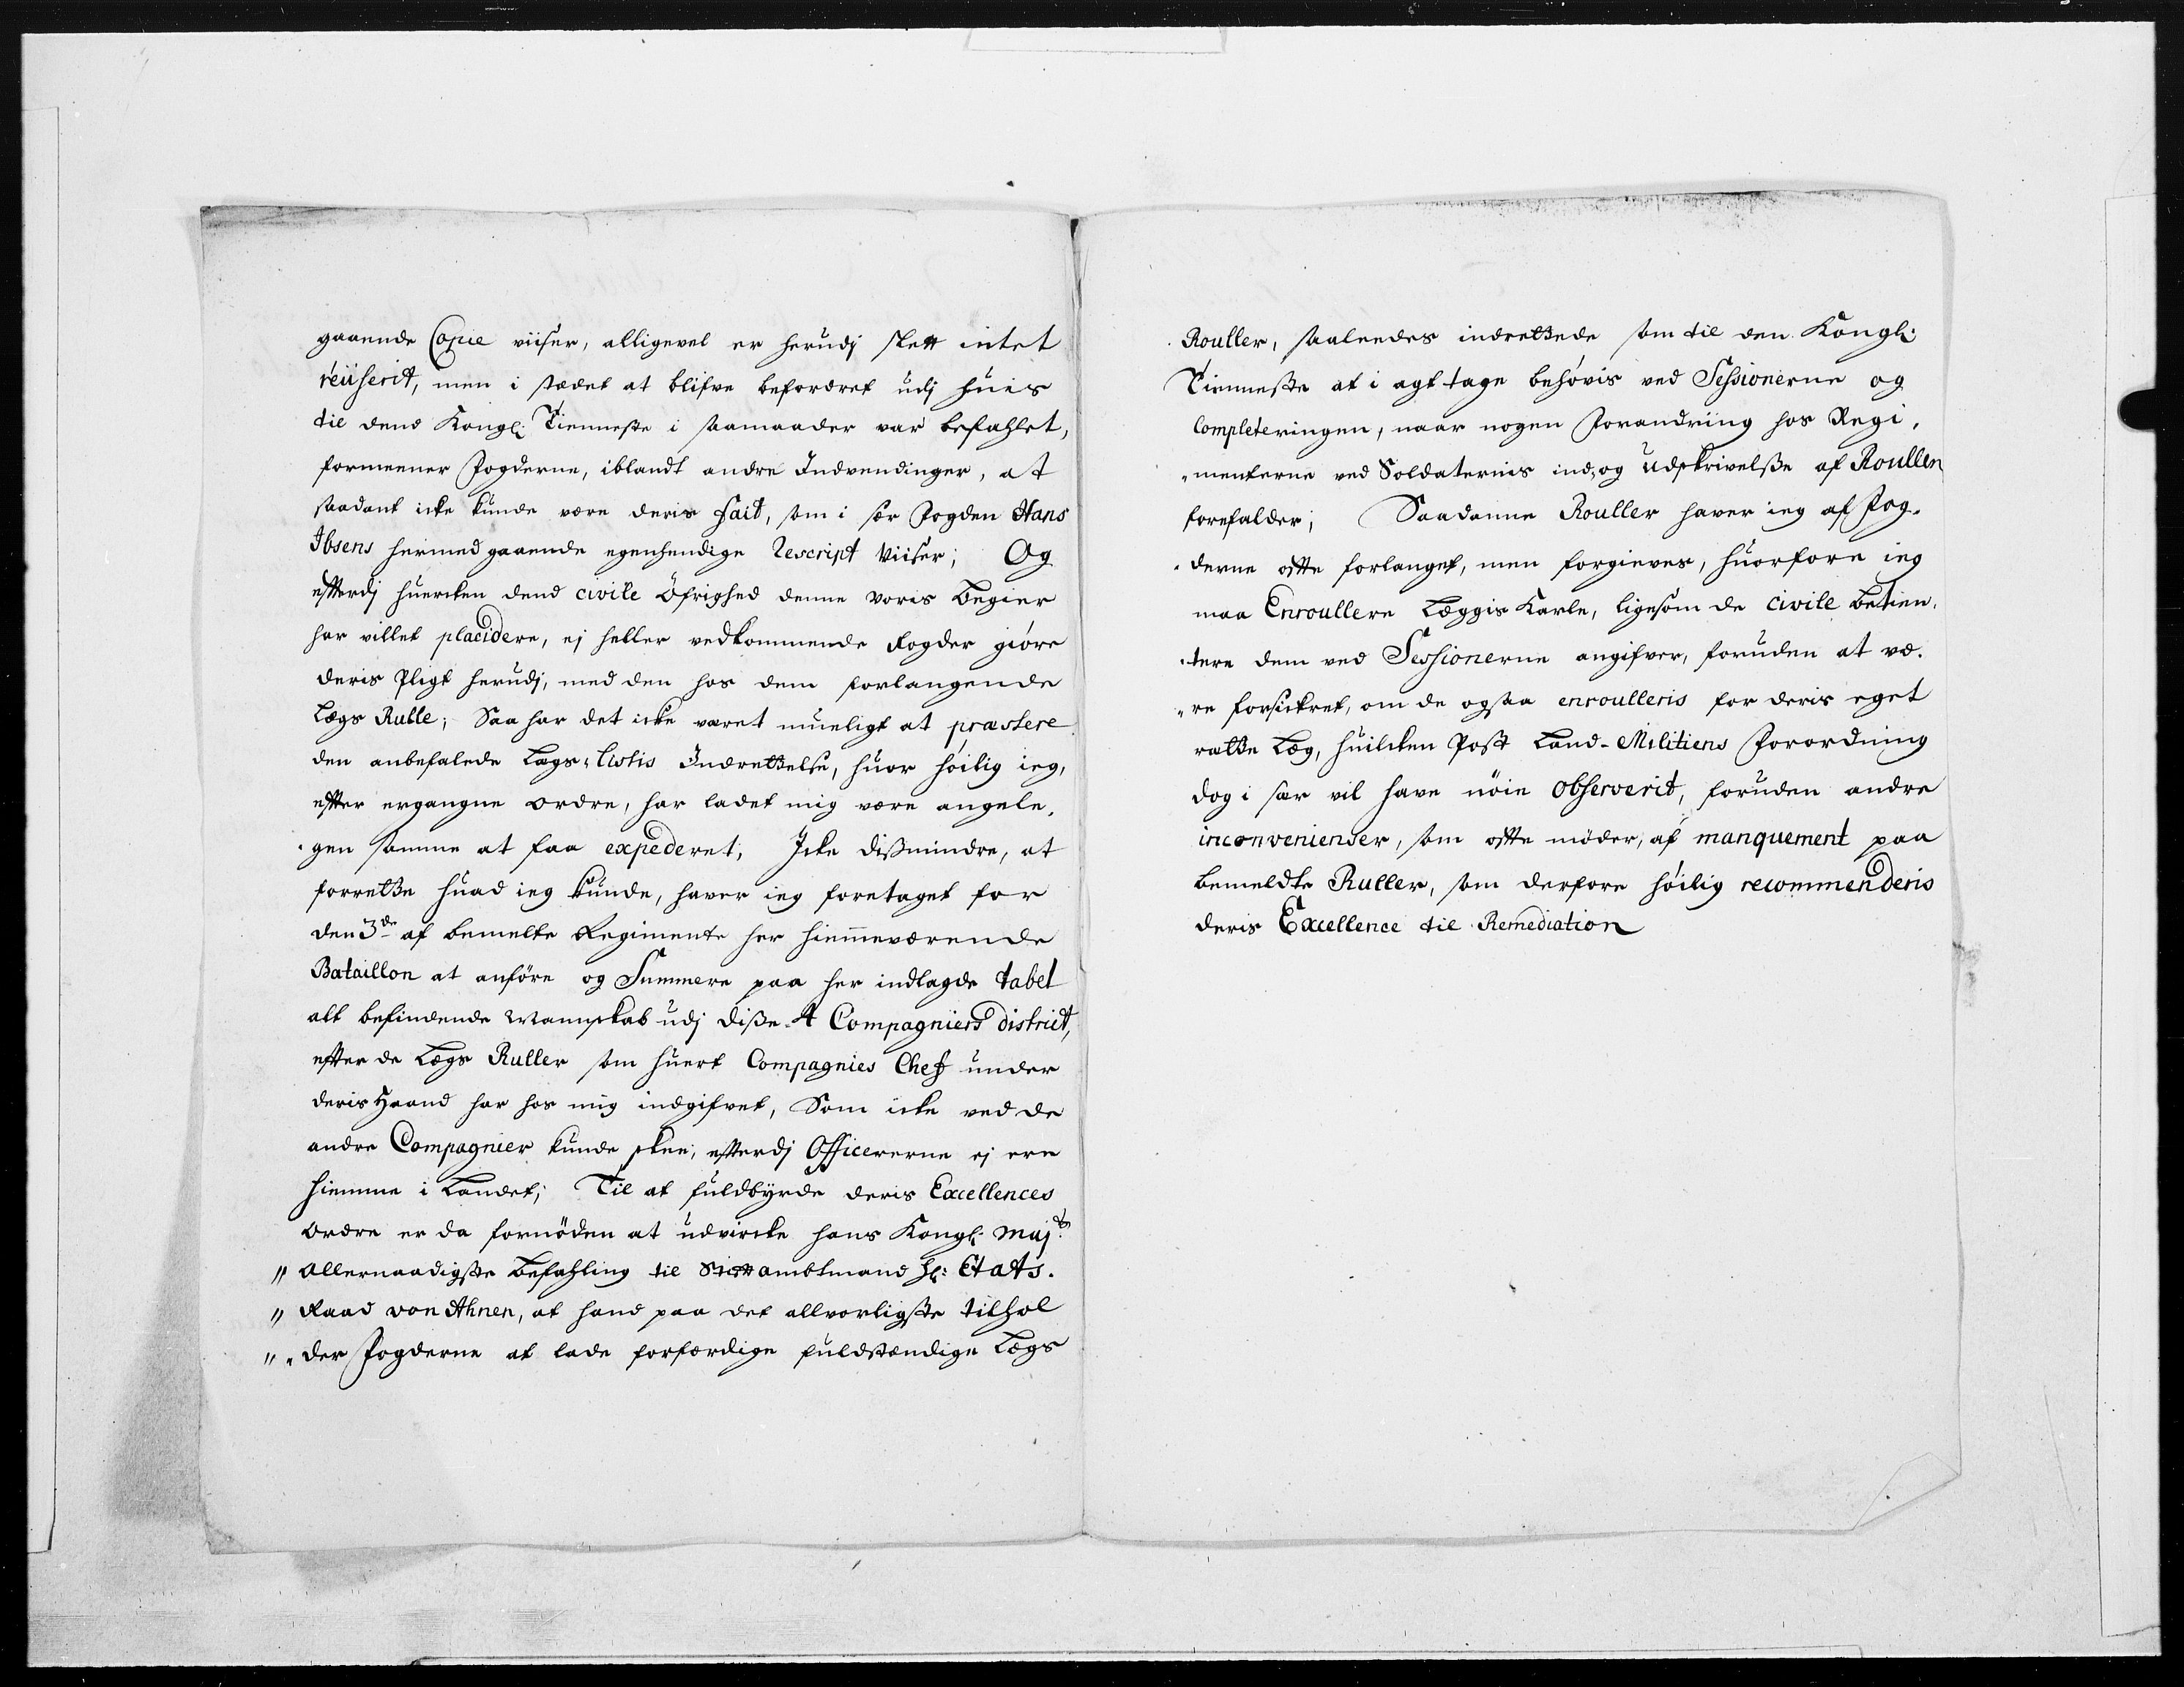 gaaende Copie viiser, alligevel er herudj slett intet
reüserit, men i stædet at blifve befordret udj huis
til dend Kongl: Tienneste i saamaader var befahlet,
formeener Fogderne, iblandt andre Indvendinger, at
saadant icke kunde være deris fait, som i sær Fogden Hans
Ibsens hermed gaaende egenhendige Rescript viiser; Og
efterdj huercken dend civile Öfrighed denne voris begier
har villet placidere, ej heller vedkommende Fogder giöre
deris Pligt herudj, med den hos dem forlangende
Lægs Rulle; Saa har det icke været mueligt at præstere
den anbefalede Lægs-Listis Indrettelse, huor höilig ieg,
efter ergangne ordre, har ladet mig være angele,
gen samme at faa expederet, Icke dißmindre, at
forrette huad ieg kunde, haver ieg foretaget for
den 3de af bemelte Regimente her hiemmeværende
Bataillon at anföre og Summere paa her indlagde tabel
alt befindende Mannskab udj diße 4 Compagniers district,
efter de Lægs Ruller som huert Compagnies Chef under
deris Haand har hos mig indgifvet, Som icke ved de
andre Compagnier kunde skee, efterdj Officererne ej ere
hiemme i Landet; Til at fuldbyrde deris Excellences
Ordre er da fornöden at udvircke hans Kongl. Majts
" Allernaadigste Befahling til Stiftambtmand Hl: Etats.
" Raad von Ahnen, at hand paa det allvorligste tilhol
" der Fogderne at lade forfærdige fuldstændige Lægs
Rouller, saaleedes indrettede som til den Kongl:
Tienneste at i agt tage behövis ved Sessionerne og
Completeringen, naar nogen Forandring hos Regi,
menterne ved Soldaternis ind, og Udskrivelße af Roullen
forefalder; Saadanne Rouller haver ieg af Fog,
derne ofte forlanget, men forgieves, huorfore ieg
maa Enroullere Læggis Karle, ligesom de civile betien,
tere dem ved Sessionerne angifver, foruden at væ,
re forsickret, om de ogsaa enroulleris for deris eget
rætte Læg, huilcken Post Land-Militiens Forordning
dog i sær vil have nöie observerit, foruden andre
inconvenienser, som ofte möder, af manquement paa
bemeldte Ruller, som derfore höilig recommenderis
deris Excellence til Remediation